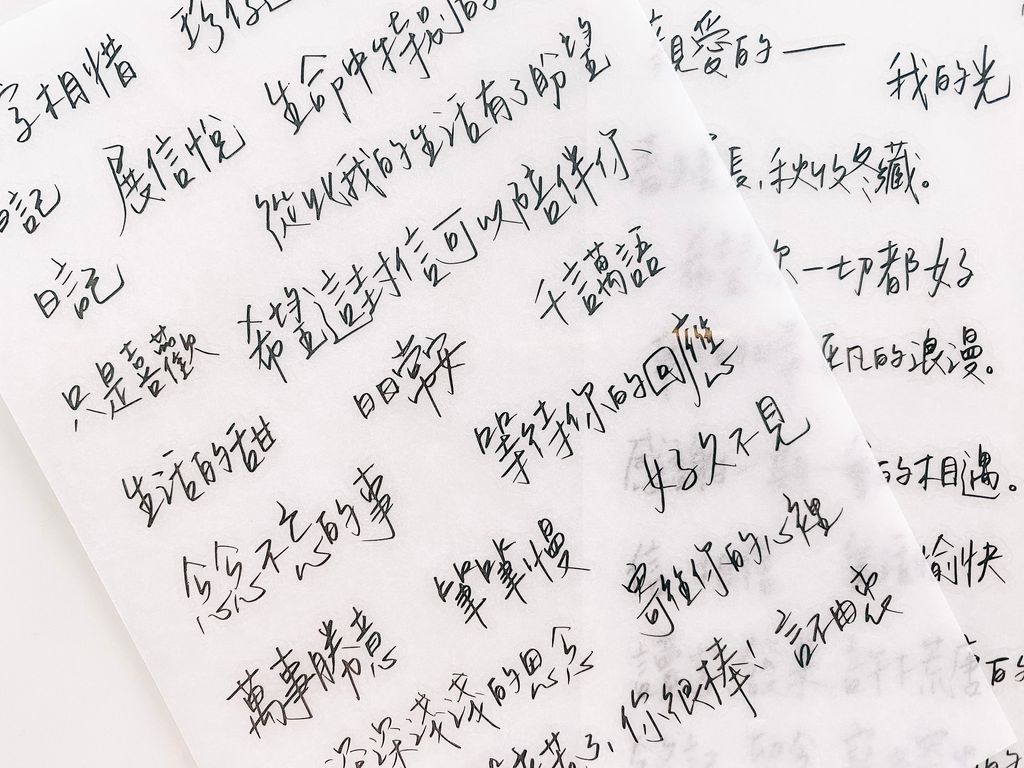 字相惜
珍惜
日記
展信悅
生命中特別的
從此我的生活有了盼望
日記
希望這封信可以陪伴你
千言萬語
只是喜歡
日日常安
等待你的回應
生活的甜
好久不見
念念不忘的事
筆筆慢
寄給你的心裡
萬事勝意
深深淺淺的思念
你很棒!
言不由衷
親愛的——
我的光
秋收冬藏。
你一切都好
平凡的浪漫。
的相遇。
愉快
的